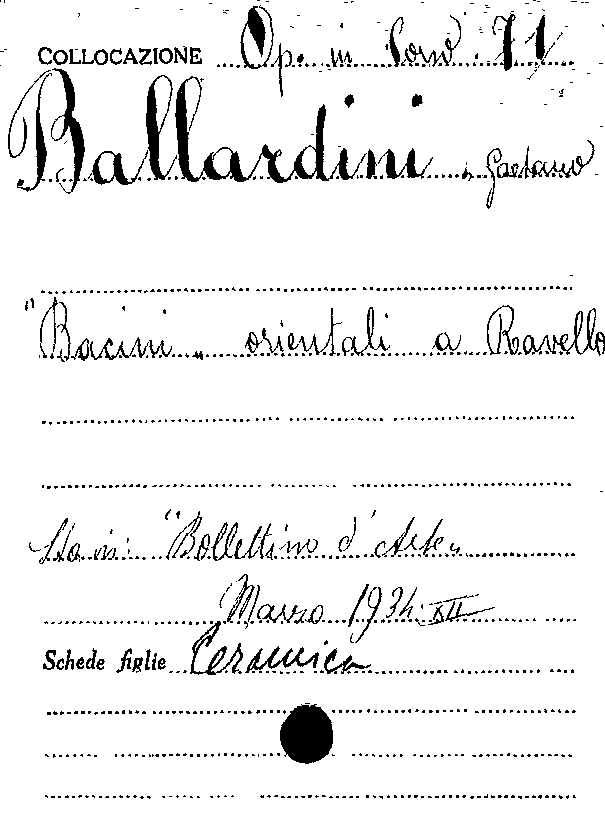 COLLOCAZIONE Op. in Corso 71
Ballardini, Gaetano
"Bacini„ orientali a Ravello
Sta in: "Bollettino d'Arte„
Marzo 1934 XII
Schede figlie Ceramica